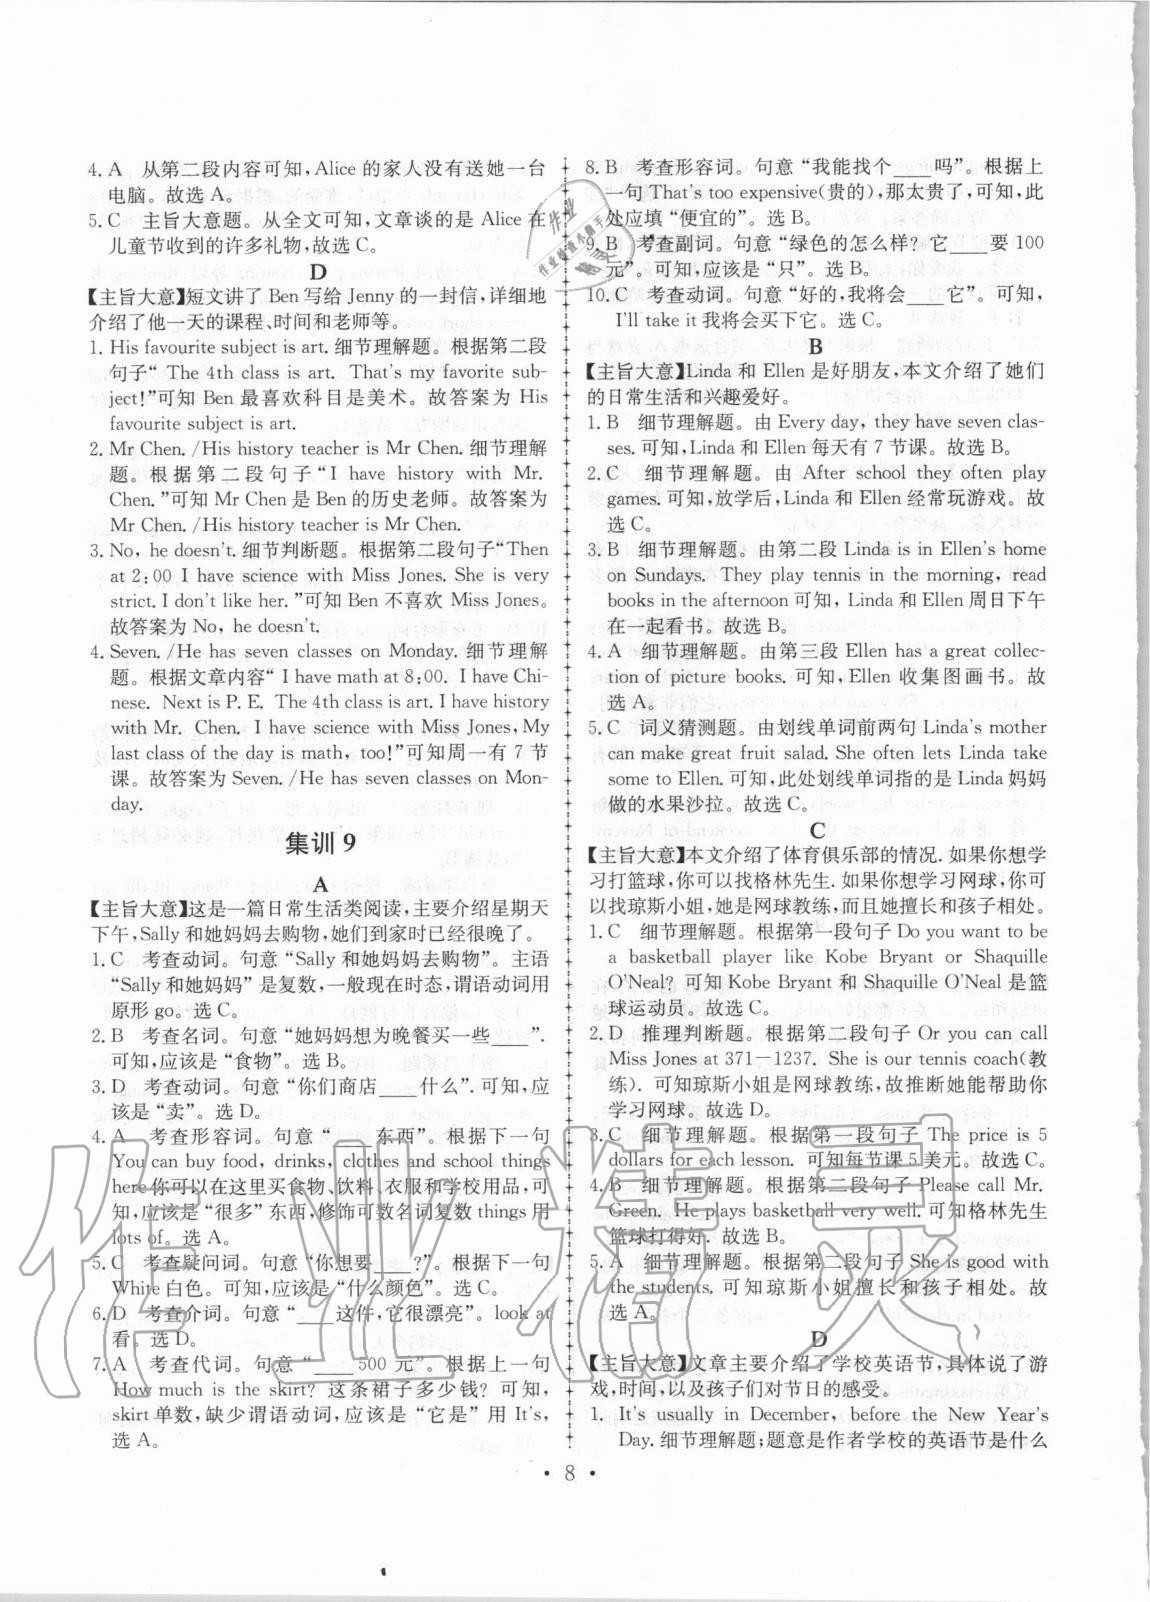 4. A 从第二段内容可知,Alice 的家人没有送她一台
电脑。故选 A。
5. C 主旨大意题。从全文可知,文章谈的是 Alice 在
儿童节收到的许多礼物,故选 C。
D
【主旨大意】短文讲了 Ben 写给 Jenny 的一封信,详细地
介绍了他一天的课程、时间和老师等。
1. His favourite subject is art. 细节理解题。根据第二段
句子“ The 4th class is art. That's my favorite sub-
ject!”可知 Ben 最喜欢科目是美术。故答案为 His
favourite subject is art.
2. Mr Chen. /His history teacher is Mr Chen. 细节理解
题。根据第二段句子“I have history with Mr.
Chen. ”可知 Mr Chen 是 Ben 的历史老师。故答案为
Mr Chen. /His history teacher is Mr Chen.
3. No, he doesn't. 细节判断题。根据第二段句子“Then
at 2:00 I have science with Miss Jones. She is very
strict. I don't like her. ”可知 Ben 不喜欢 Miss Jones。
故答案为 No, he doesn't.
4. Seven. /He has seven classes on Monday. 细节理解
题。根据文章内容“ I have math at 8:00. I have Chi-
nese. Next is P. E. The 4th class is art. I have history
with Mr. Chen. I have science with Miss Jones, My
last class of the day is math, too!”可知周一有 7 节
课。故答案为 Seven. /He has seven classes on Mon-
day.
集训 9
A
【主旨大意】这是一篇日常生活类阅读,主要介绍星期天
下午,Sally 和她妈妈去购物,她们到家时已经很晚了。
1. C 考查动词。句意“Sally 和她妈妈去购物”。主语
“Sally 和她妈妈”是复数,一般现在时态,谓语动词用
原形 go。选 C。
2. B 考查名词。句意“她妈妈想为晚餐买一些____”.
可知,应该是“食物”。选 B。
3. D 考查动词。句意“你们商店____什么”. 可知,应
该是“卖”。选 D。
4. A 考查形容词。句意“____东西”。根据下一句
You can buy food, drinks, clothes and school things
here 你可以在这里买食物、饮料、衣服和学校用品,可
知,应该是“很多”东西,修饰可数名词复数 things 用
lots of。选 A。
5. C 考查疑问词。句意“你想要____?”。根据下一句
White 白色。可知,应该是“什么颜色”。选 C。
6. D 考查介词。句意“____这件,它很漂亮”。look at
看。选 D。
7. A 考查代词。句意“____500 元”。根据上一句
How much is the skirt? 这条裙子多少钱? 可知,
skirt 单数,缺少谓语动词,应该是“它是”用 It's,
选 A。
8. B 考查形容词。句意“我能找个____吗”。根据上
一句 That's too expensive(贵的),那太贵了,可知,此
处应填“便宜的”。选 B。
9. B 考查副词。句意“绿色的怎么样? 它____要 100
元”。可知,应该是“只”。选 B。
10. C 考查动词。句意“好的,我将会____它”。可知,
I'll take it 我将会买下它。选 C。
B
【主旨大意】Linda 和 Ellen 是好朋友,本文介绍了她们
的日常生活和兴趣爱好。
1. B 细节理解题。由 Every day, they have seven clas-
ses. 可知, Linda 和 Ellen 每天有 7 节课。故选 B。
2. C 细节理解题。由 After school they often play
games. 可知,放学后,Linda 和 Ellen 经常玩游戏。故
选 C。
3. B 细节理解题。由第二段 Linda is in Ellen's home
on Sundays. They play tennis in the morning, read
books in the afternoon 可知, Linda 和 Ellen 周日下午
在一起看书。故选 B。
4. A 细节理解题。由第三段 Ellen has a great collec-
tion of picture books. 可知, Ellen 收集图画书。故
选 A。
5. C 词义猜测题。由划线单词前两句 Linda's mother
can make great fruit salad. She often lets Linda take
some to Ellen. 可知,此处划线单词指的是 Linda 妈妈
做的水果沙拉。故选 C。
C
【主旨大意】本文介绍了体育俱乐部的情况. 如果你想学
习打篮球,你可以找格林先生. 如果你想学习网球,你可
以找琼斯小姐,她是网球教练,而且她擅长和孩子相处。
1. C 细节理解题。根据第一段句子 Do you want to be
a basketball player like Kobe Bryant or Shaquille
O'Neal? 可知 Kobe Bryant 和 Shaquille O'Neal 是篮
球运动员。故选 C。
2. D 推理判断题。根据第二段句子 Or you can call
Miss Jones at 371—1237. She is our tennis coach(教
练). 可知琼斯小姐是网球教练,故推断她能帮助你
学习网球。故选 D。
3. C 细节理解题。根据第一段句子 The price is 5
dollars for each lesson. 可知每节课 5 美元。故选 C。
4. B 细节理解题。根据第二段句子 Please call Mr.
Green. He plays basketball very well. 可知格林先生
篮球打得好. 故选 B。
5. A 细节理解题。根据第二段句子 She is good with
the students. 可知琼斯小姐擅长和孩子相处。故
选 A。
D
【主旨大意】文章主要介绍了学校英语节,具体说了游
戏,时间,以及孩子们对节日的感受。
1. It's usually in December, before the New Year's
Day. 细节理解题;题意是作者学校的英语节是什么
· 8 ·
作业精灵